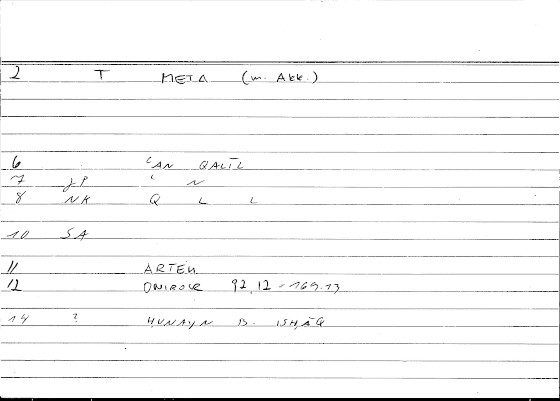 2 T META (m. Akk.)
6 ʿAN QALĪL
7 JP ʿ N
8 NK Q L L
10 SA
11 ARTEM
12 ONIROCR 92,12 - 169.13
14 ? ḤUNAYN B. ISḤĀQ